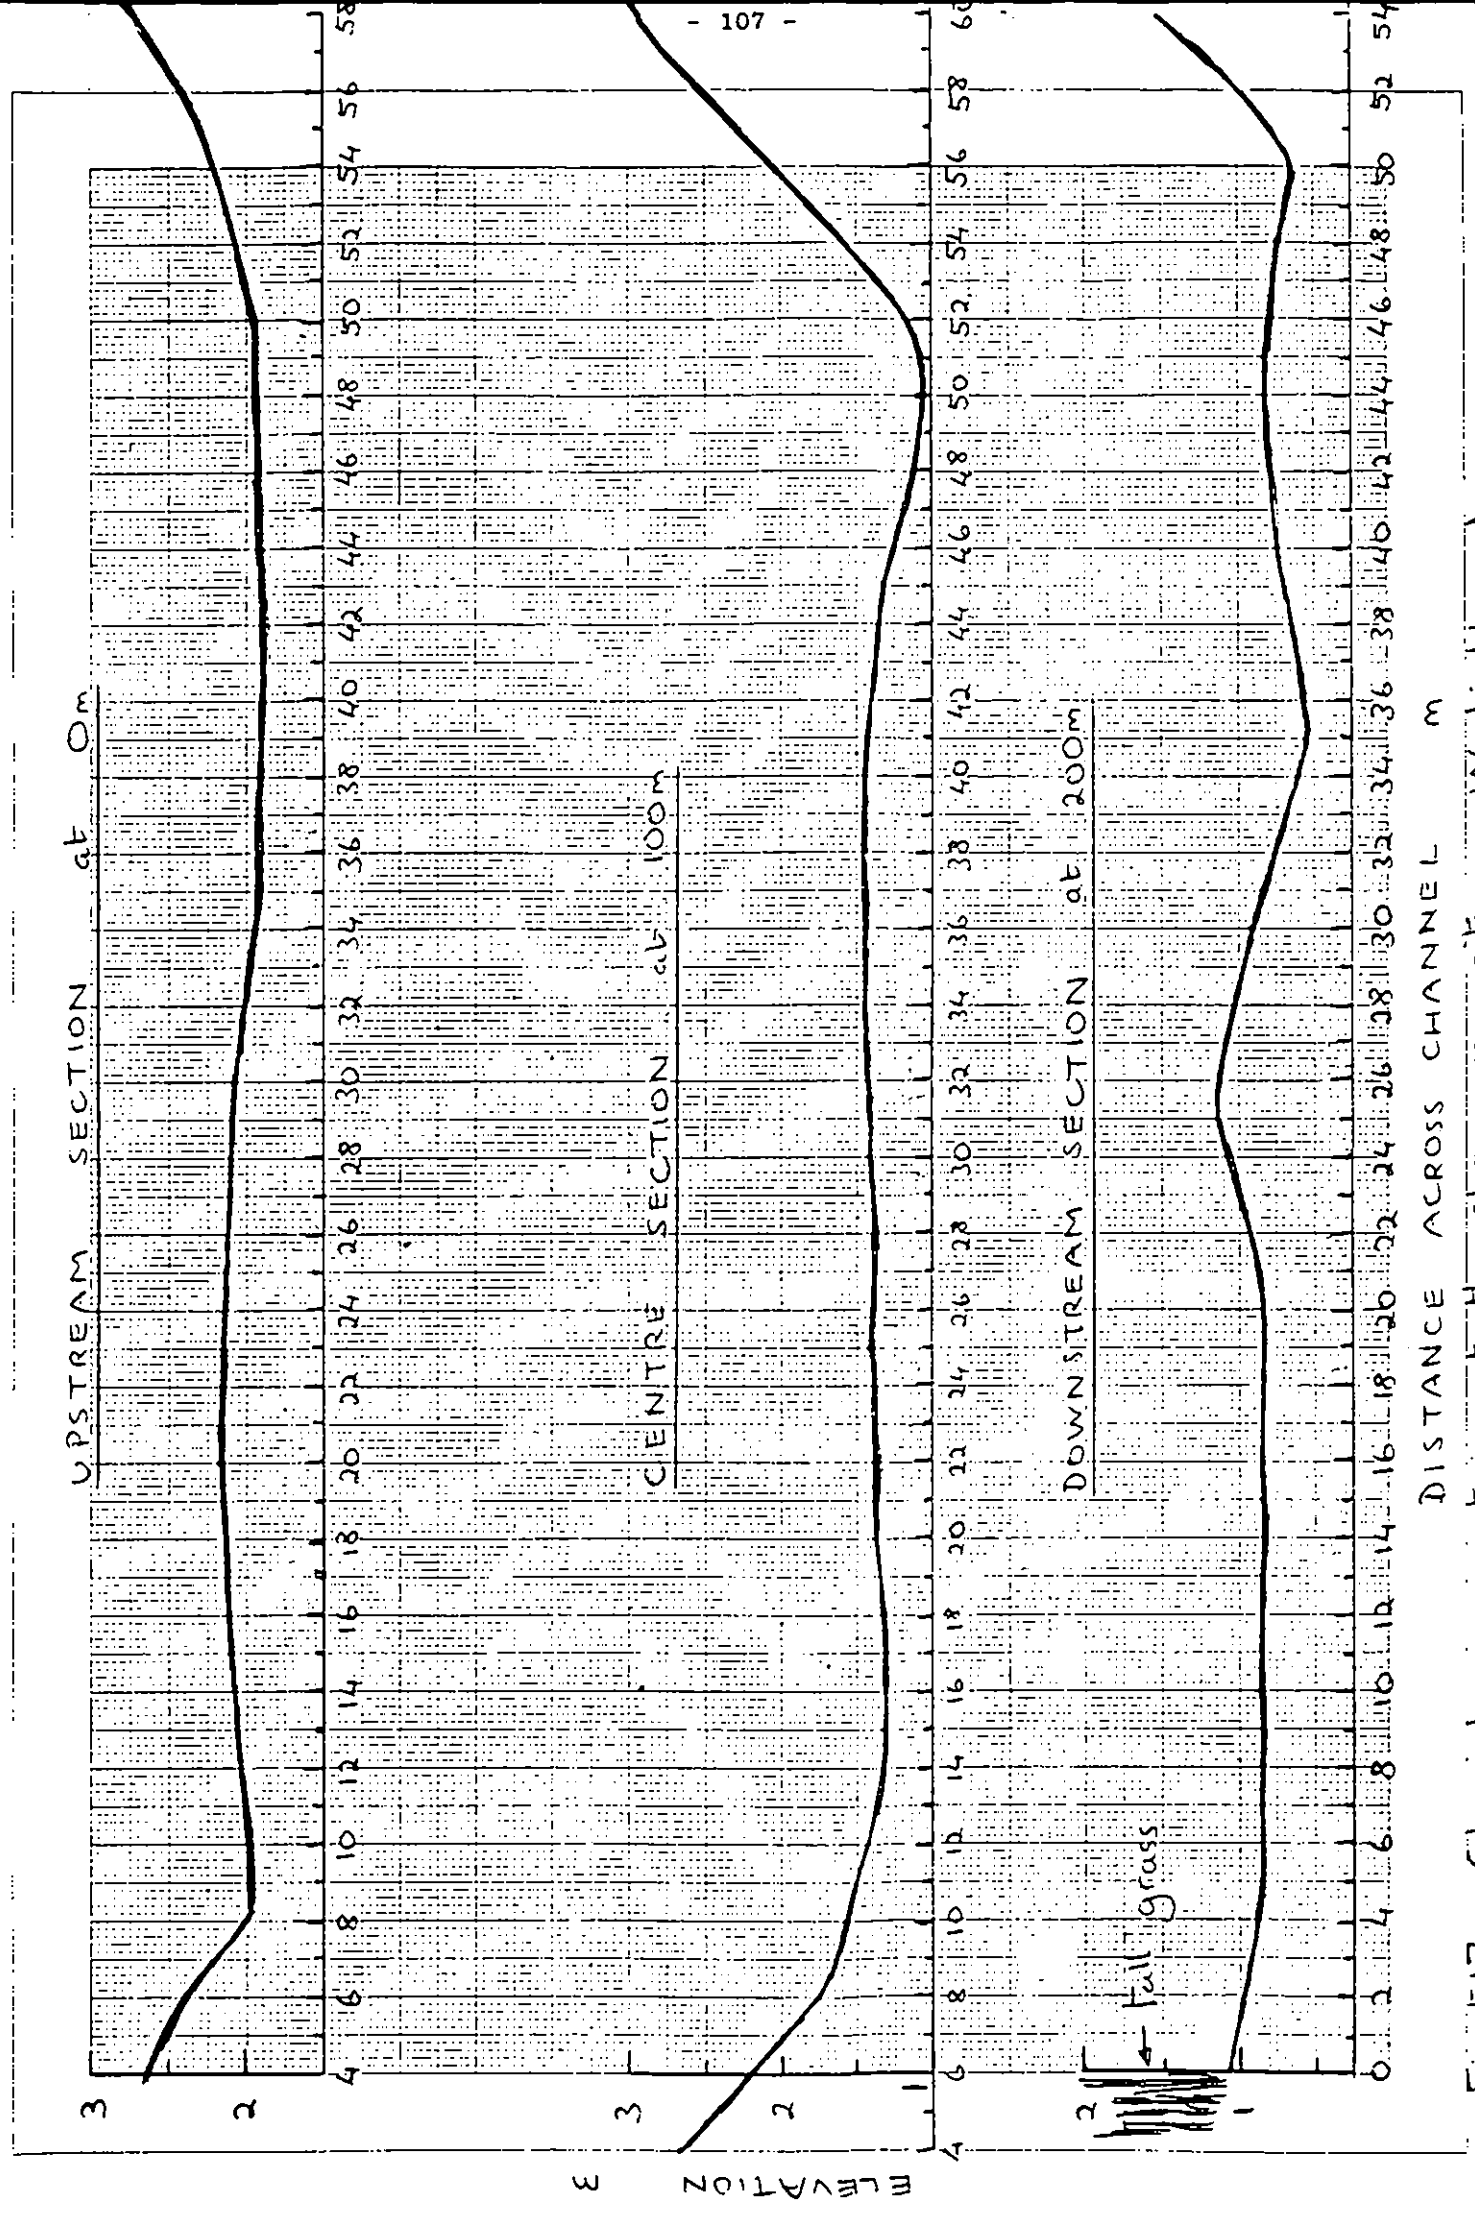 - 107 -
UPSTREAM SECTION at 0m
3
2
4 6 8 10 12 14 16 18 20 22 24 26 28 30 32 34 36 38 40 42 44 46 48 50 52 54 56 58
CENTRE SECTION at 100m
3
2
1
4 6 8 10 12 14 16 18 20 22 24 26 28 30 32 34 36 38 40 42 44 46 48 50 52 54 56 58 60
DOWNSTREAM SECTION at 200m
tall grass
2
1
0 2 4 6 8 10 12 14 16 18 20 22 24 26 28 30 32 34 36 38 40 42 44 46 48 50 52 54
ELEVATION m
DISTANCE ACROSS CHANNEL m